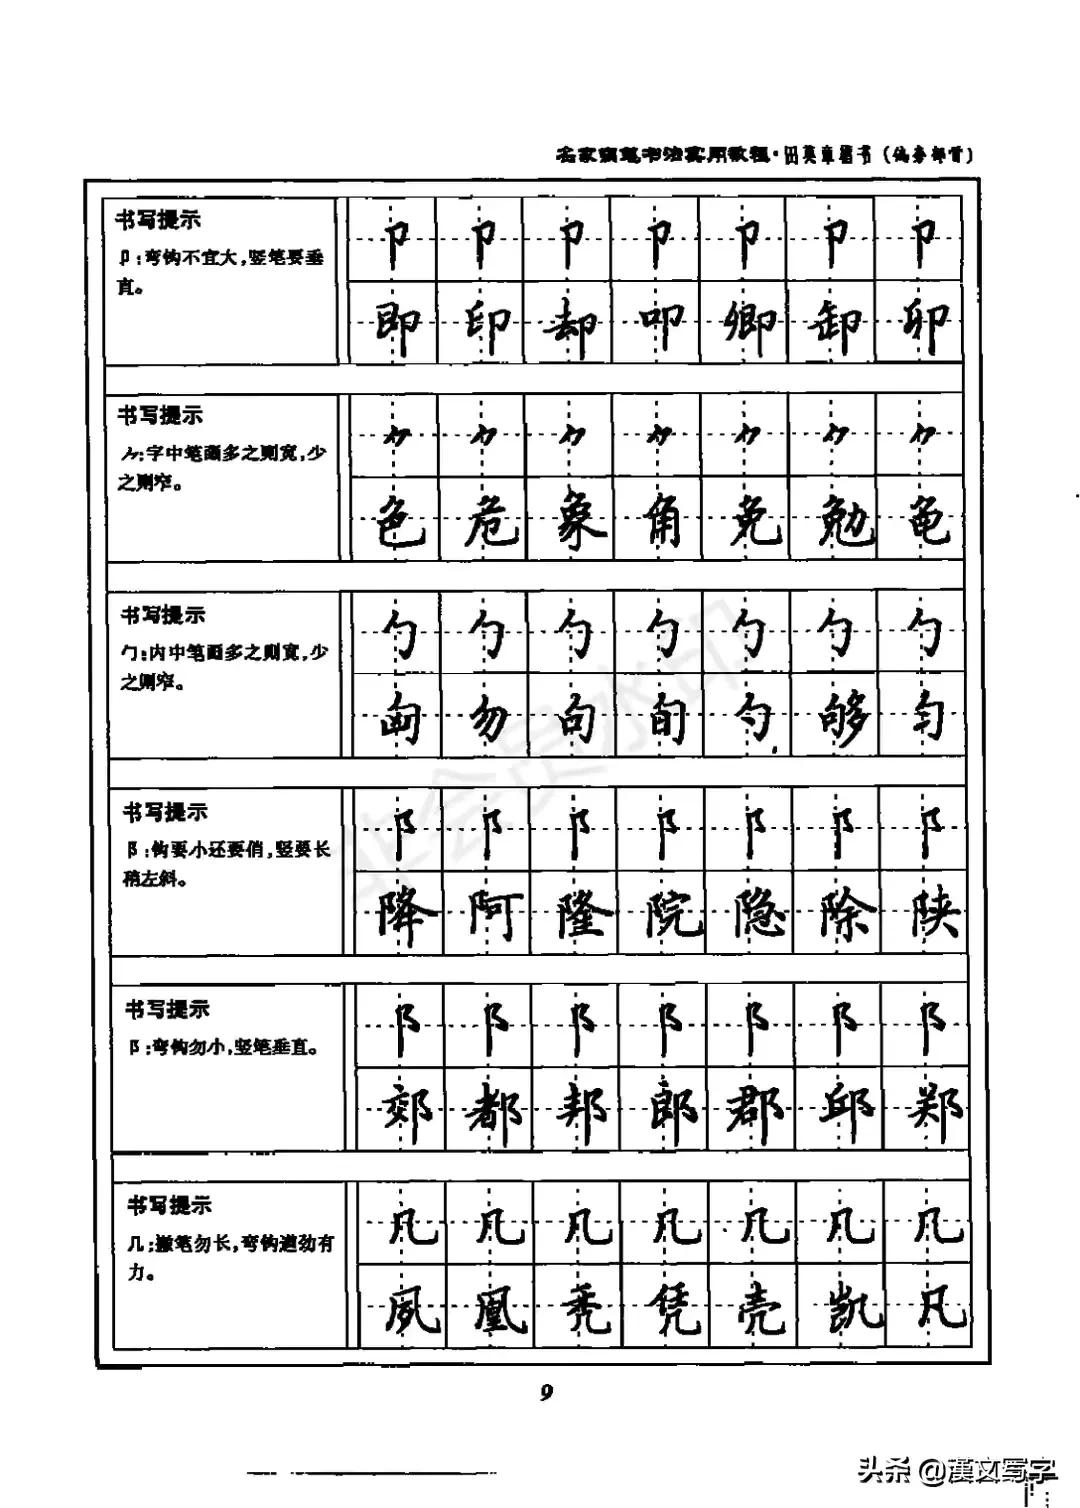 名家硬笔书法实用教程·田英章楷书（偏旁部首）
书写提示
卩:弯钩不宜大,竖笔要垂
直。
卩卩卩卩卩卩卩
即印却叩卿卸卯
书写提示
⺈:字中笔画多之则宽,少
之则窄。
⺈⺈⺈⺈⺈⺈⺈
色危象角免勉龟
书写提示
勹:内中笔画多之则宽,少
之则窄。
勹勹勹勹勹勹勹
匈勿句旬勺够匀
书写提示
阝:钩要小还要俏,竖要长
稍左斜。
阝阝阝阝阝阝阝
降阿隆院隐除陕
书写提示
阝:弯钩勿小,竖笔垂直。
阝阝阝阝阝阝阝
郊都邦郎郡邱郑
书写提示
几:撇笔勿长,弯钩遒劲有
力。
几几几几几几几
夙凰秃凭壳凯凡
9
非会员水印
头条 @漢文写字